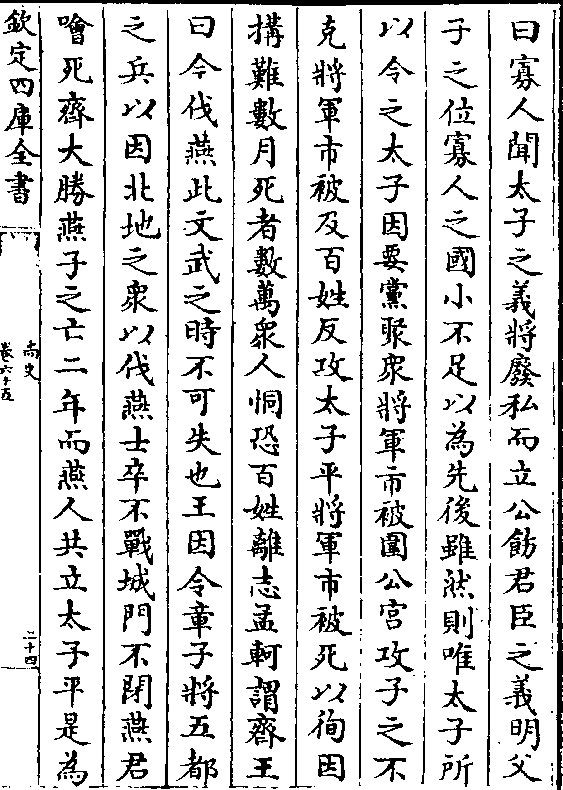 曰寡人聞太子之義將廢私而立公飭君臣之義明父
子之位寡人之國小不足以為先後雖然則唯太子所
以令之太子因要黨聚衆將軍市被圍公宮攻子之不
克將軍市被及百姓反攻太子平將軍市被死以徇因
搆難數月死者數萬衆人恫恐百姓離志孟軻謂齊王
曰今伐燕此文武之時不可失也王因令章子將五都
之兵以因北地之衆以伐燕士卒不戰城門不閉燕君
噲死齊大勝燕子之亡二年而燕人共立太子平是為
欽定四庫全書
尚史
卷六十五
二十四